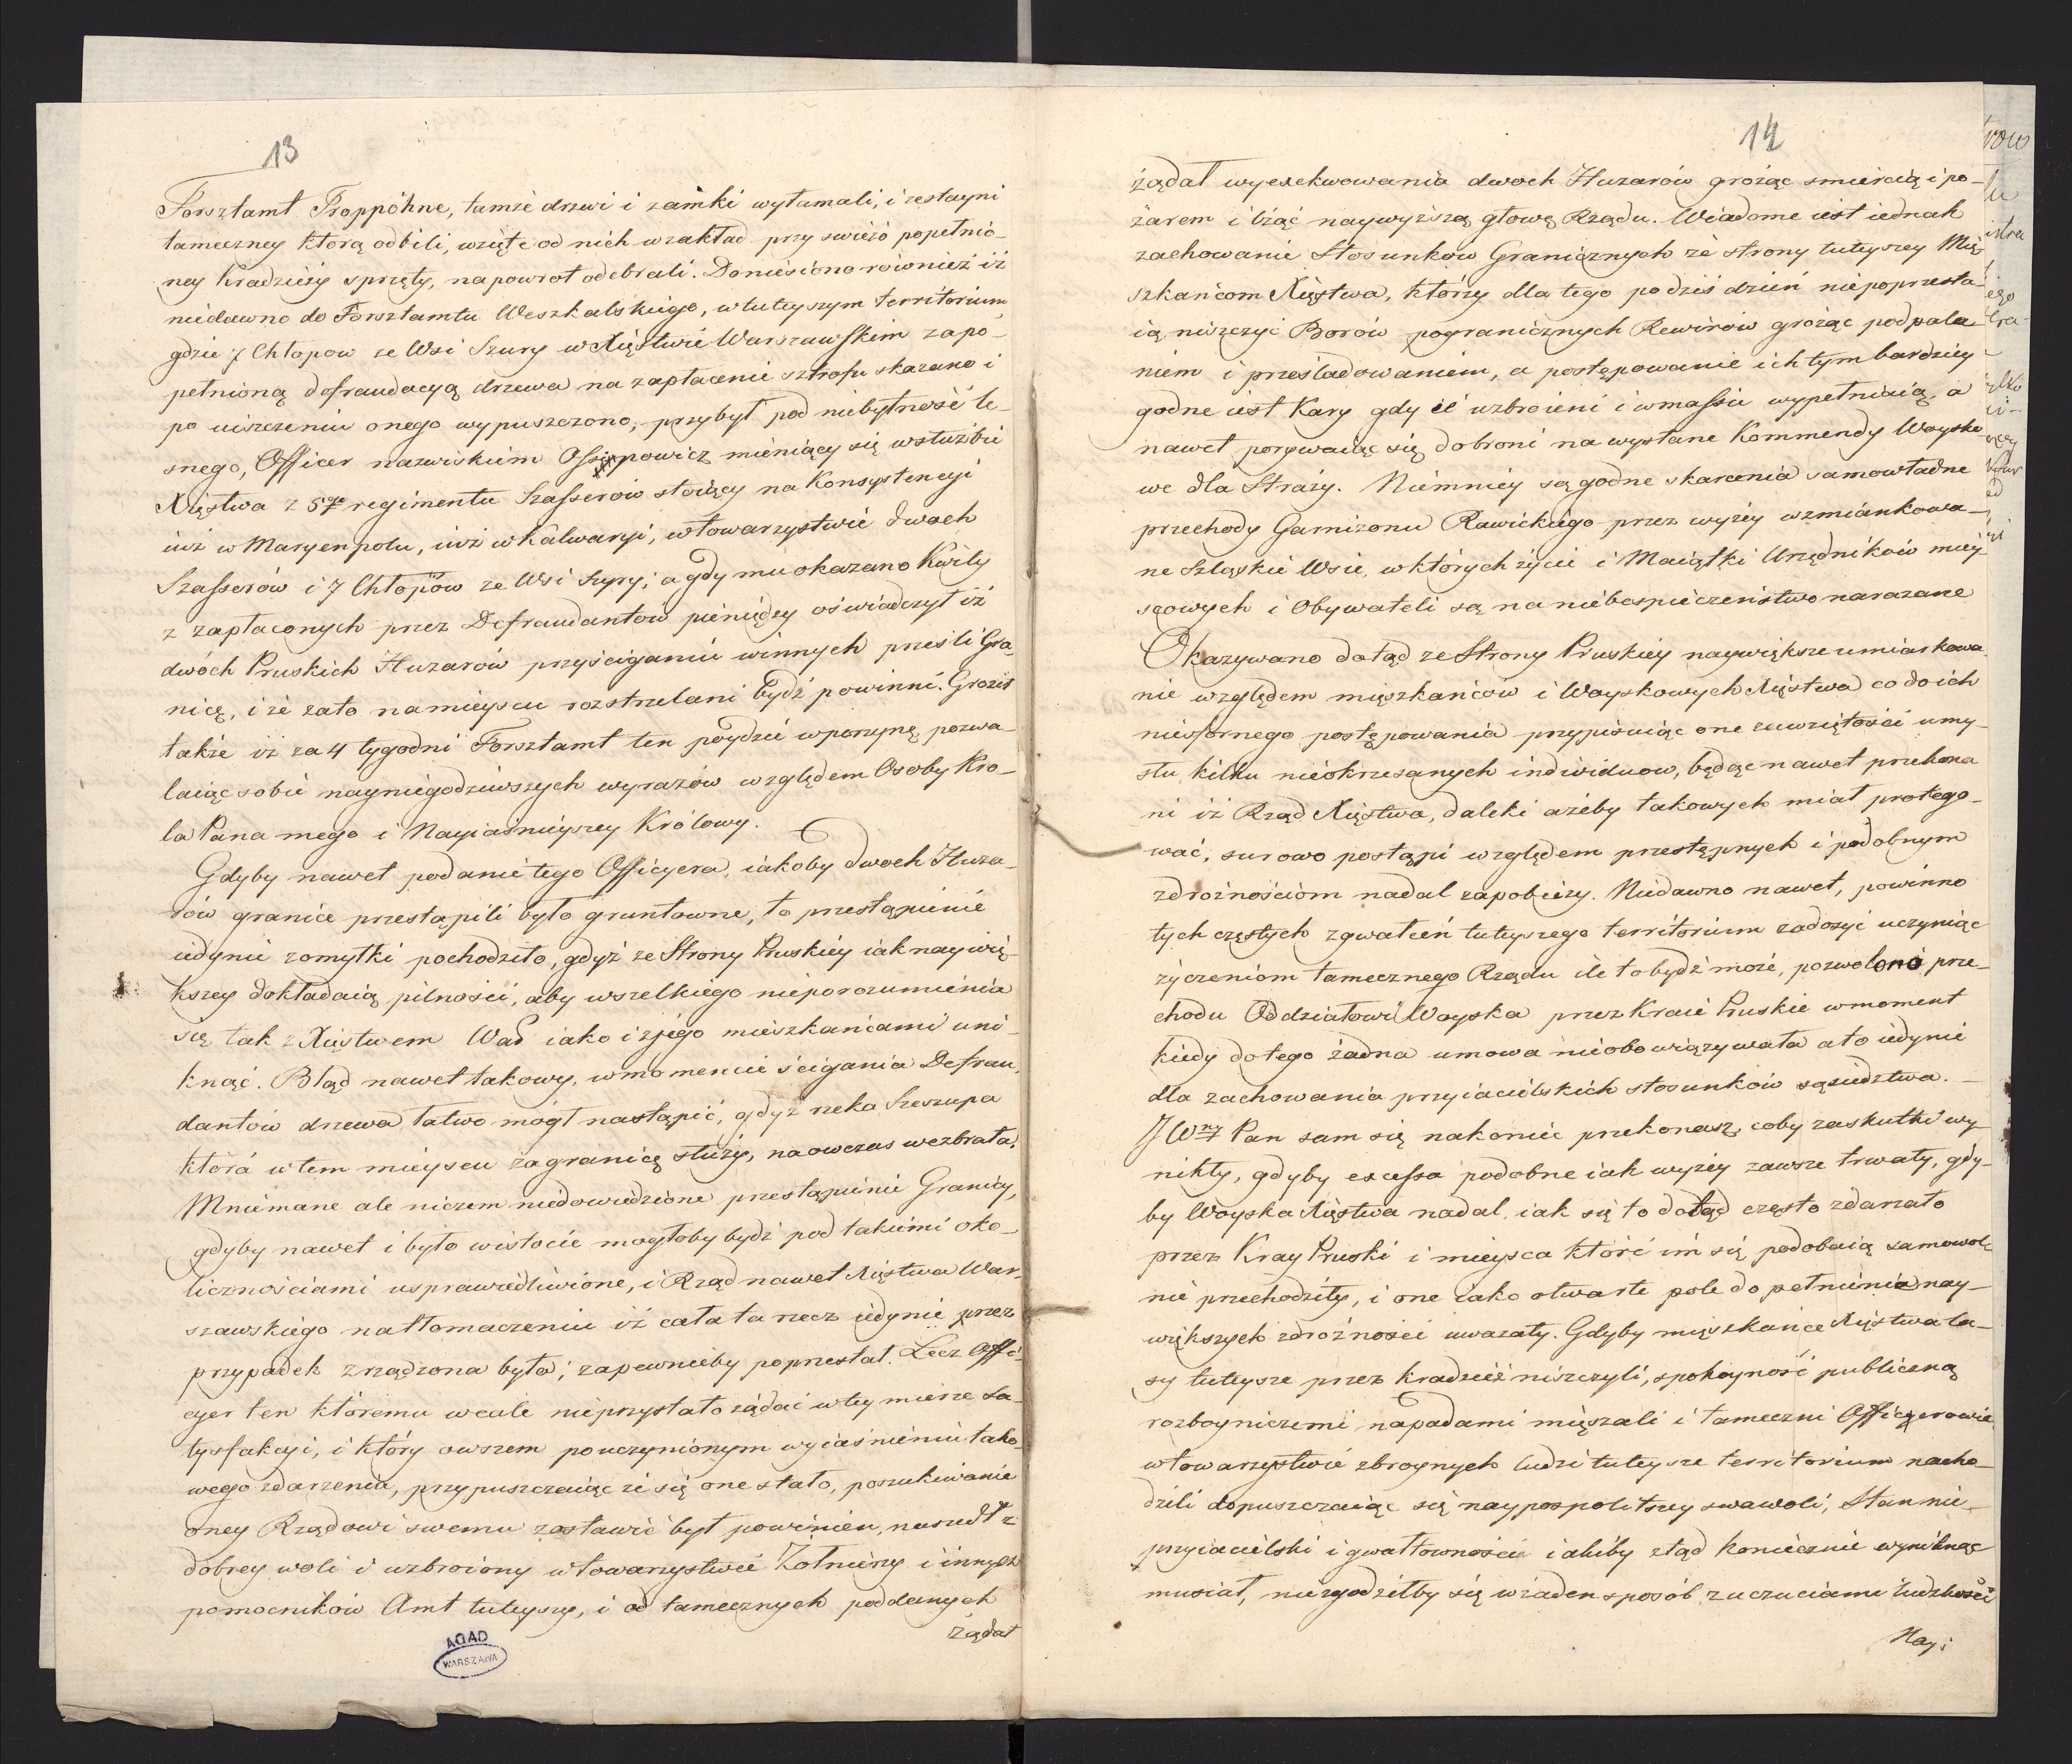 13
Forsztamt Troppöhne, tamże drzwi i zamki wyłamali, i ze stayni
tameczney którą odbili, wzięte od nich w zakład przy swieżo popełnio-
ney kradzieży sprzęty, na powrot odebrali. Doniesiono również iż
niedawno do Forsztamtu Weszkalskiego, w tuteyszym territorium
gdzie 7 Chłopow ze Wsi Szury w Xięstwie Warszawskim zapo-
pełnioną defraudacyą drzewa na zapłacenie sztrofu skazano i
po uiszczeniu onego wypuszczono, przybył pod niebytność le-
snego, Officer nazwiskiem Ossipowicz mieniący się w służbie
Xięstwa z 5go regimentu Szasserów stoiący na Konsystencyi
iuż w Maryenpolu, iuż w Kalwaryi, w towarzystwie dwóch
Szasserów i 7 Chłopów ze Wsi Szyry; a gdy mu okazano Kwity
z zapłaconych przez Defraudantow pieniędzy oświadczył iż
dwóch Pruskich Huzarów przy ściganiu winnych przeszli Gra-
nicę, i że za to na mieyscu rozstrzelani bydź powinni. Groził
także iż za 4 tygodni Forsztamt ten póydzie w perzynę, pozwa-
laiąc sobie nayniegodziwszych wyrazów względem Osoby Kró-
la Pana mego i Nayiaśnieyszey Królowy.
Gdyby nawet podanie tego Officyera, iakoby dwoch Huza-
rów granice przestąpili było gruntowne, to przestąpienie
iedynie z omyłki pochodziło, gdyż ze Strony Pruskiéy iak naywię-
kszey dokładaią pilności, aby wszelkiego nieporozumienia
się tak z Xięstwem War iako i z jego mieszkańcami uni-
knąć. Błąd nawet takowy, w momencie ścigania Defrau-
dantów drzewa łatwo mógł nastąpić, gdyż rzeka Szeszupa
która w tem mieyscu za granicę służy, na owczas wezbrała.
Mniemane ale niczem niedowiedzione przestąpienie Granicy,
gdyby nawet i było w istocie mogłoby bydź pod takiemi oko-
licznościami usprawiedliwione, i Rząd nawet Xięstwa War-
szawskiego na tłomaczeniu iż cała ta rzecz iedynie przez
przypadek zrządzona była; zapewnieby poprzestał. Lecz Offi-
cyer ten któremu wcale nieprzystało żądać w tey mierze sa-
tysfakcyi, i który owszem po uczynionym wyiaśnieniu tako-
wego zdarzenia, przypuszczaiąc że się one stało, poszukiwanie
oney Rządowi swemu zostawić był powinien, naszedł z
dobrey woli i uzbroiony w towarzystwie Żołnierzy i innych
pomocników Amt tuteyszy, i od tamecznych poddanych
żądał
AGAD
WARSZAWA
14
żądał wyexekwowania dwoch Huzarów grożąc smiercią i po-
żarem i lżąć naywyższą głowę Rządu. Wiadome iest iednak
zachowanie Stosunków Granicznych ze strony tuteyszey Mie-
szkańcom Xięstwa, którzy dla tego po dziś dzień niepoprzesta-
ią niszczyć Borów pogranicznych Rewirów grożąc podpala-
niem i prześladowaniem, a postępowanie ich tym bardziey
godne iest Kary gdy ie uzbroieni i w massie wypełniaią, a
nawet porywaiąc się do broni na wysłane Kommendy Woysko-
we dla Straży. Niemniey są godne skarcenia samowładne
przechody Garnizonu Rawickiego przez wyżey wzmiankowa-
ne Szląskie Wsie, w których życie i Maiątki Urzędników miey-
scowych i Obywateli są na niebespieczeństwo narazane
Okazywano dotąd ze Strony Pruskiéy naywiększe umiarkowa-
nie względem mięszkańców i Woyskowych Xięstwa co do ich
niesfornego postępowania przypisuiąc one zawziętości umy-
słu kilku nieokrzesanych individuow, będąc nawet przekona
ni iż Rząd Xięstwa, daleki ażeby takowych miał protego-
wać, surowo postąpi względem przestępnych i podobnym
zdrożnościom nadal zapobieży. Niedawno nawet, powinno
tych częstych zgwałceń tuteyszego territorium zadosyć uczyniąc
życzeniom tamecznego Rządu ile to bydź może, pozwolono prze-
chodu Oddziałowi Woyska przez Kraie Pruskie w moment
kiedy do tego żadna umowa nieobowiązywała a to iedynie
dla zachowania przyiacielskich stosunków sąsiedztwa.
JWny Pan sam się nakoniec przekonasz, coby za skutki wy-
nikły, gdyby excessa podobne iak wyżey zawsze trwały, gdy-
by Woyska Xięstwa nadal, iak się to dotąd często zdarzało
przez Kray Pruski i mieysca które im się podobaią samowol-
nie przechodziły, i one iako otwarte pole do pełnienia nay-
większych zdrożności uważały. Gdyby mięszkańce Xięstwa la-
sy tuteysze przez kradzież niszczyli, spokoyność publiczną
rozboyniczemi napadami mięszali i tameczni Officyerowie
w towarzystwie zbroynych ludzi tuteysze territorium nacho-
dzili dopuszczaiąc się naypospolitszey swawoli, Stan nie-
przyiacielski i gwałtowności iakiby ztąd koniecznie wyniknąć
musiał, niezgodziłby się w żaden sposób z uczuciami ludzkości
Nay: